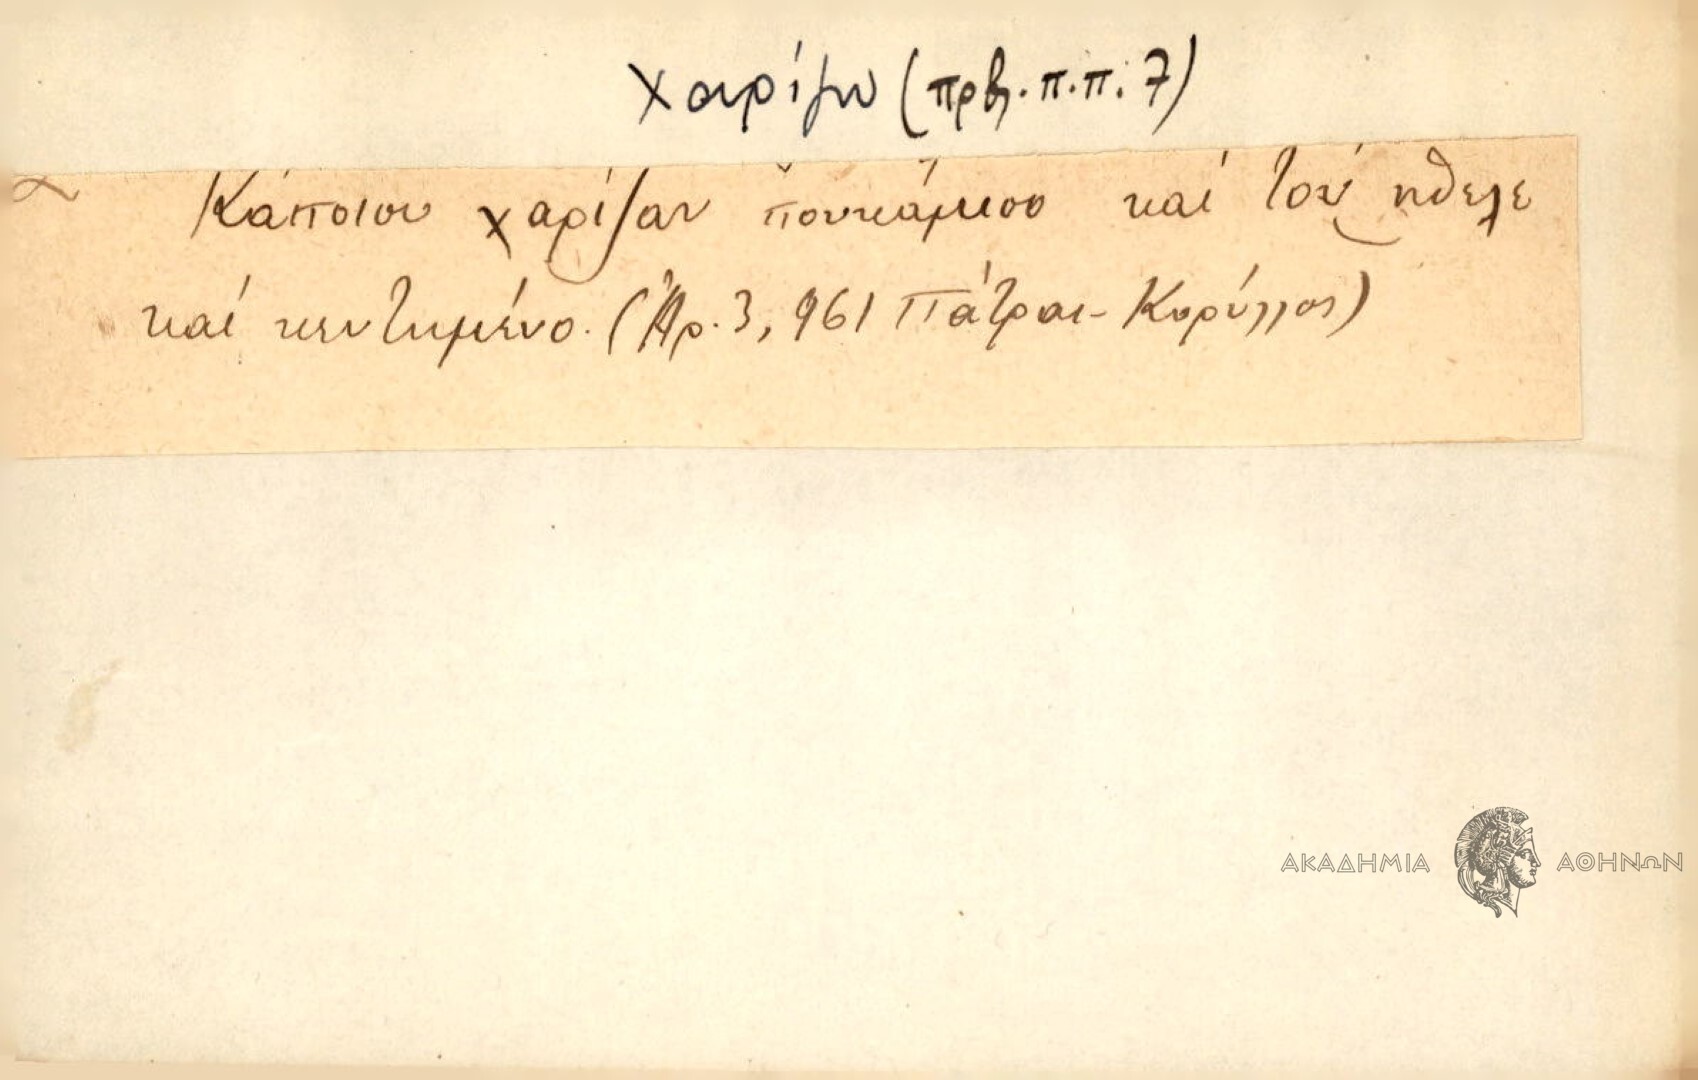 χαρίζω (πρβ. π.π. 7)
Κάποιου χαρίζαν πουκάμισο καὶ τοῦ ἤθελε
καὶ κεντημένο. (Ἀρ. 3, 961 Πάτραι - Κορύλλος)
ΑΚΑΔΗΜΙΑ ΑΘΗΝΩΝ